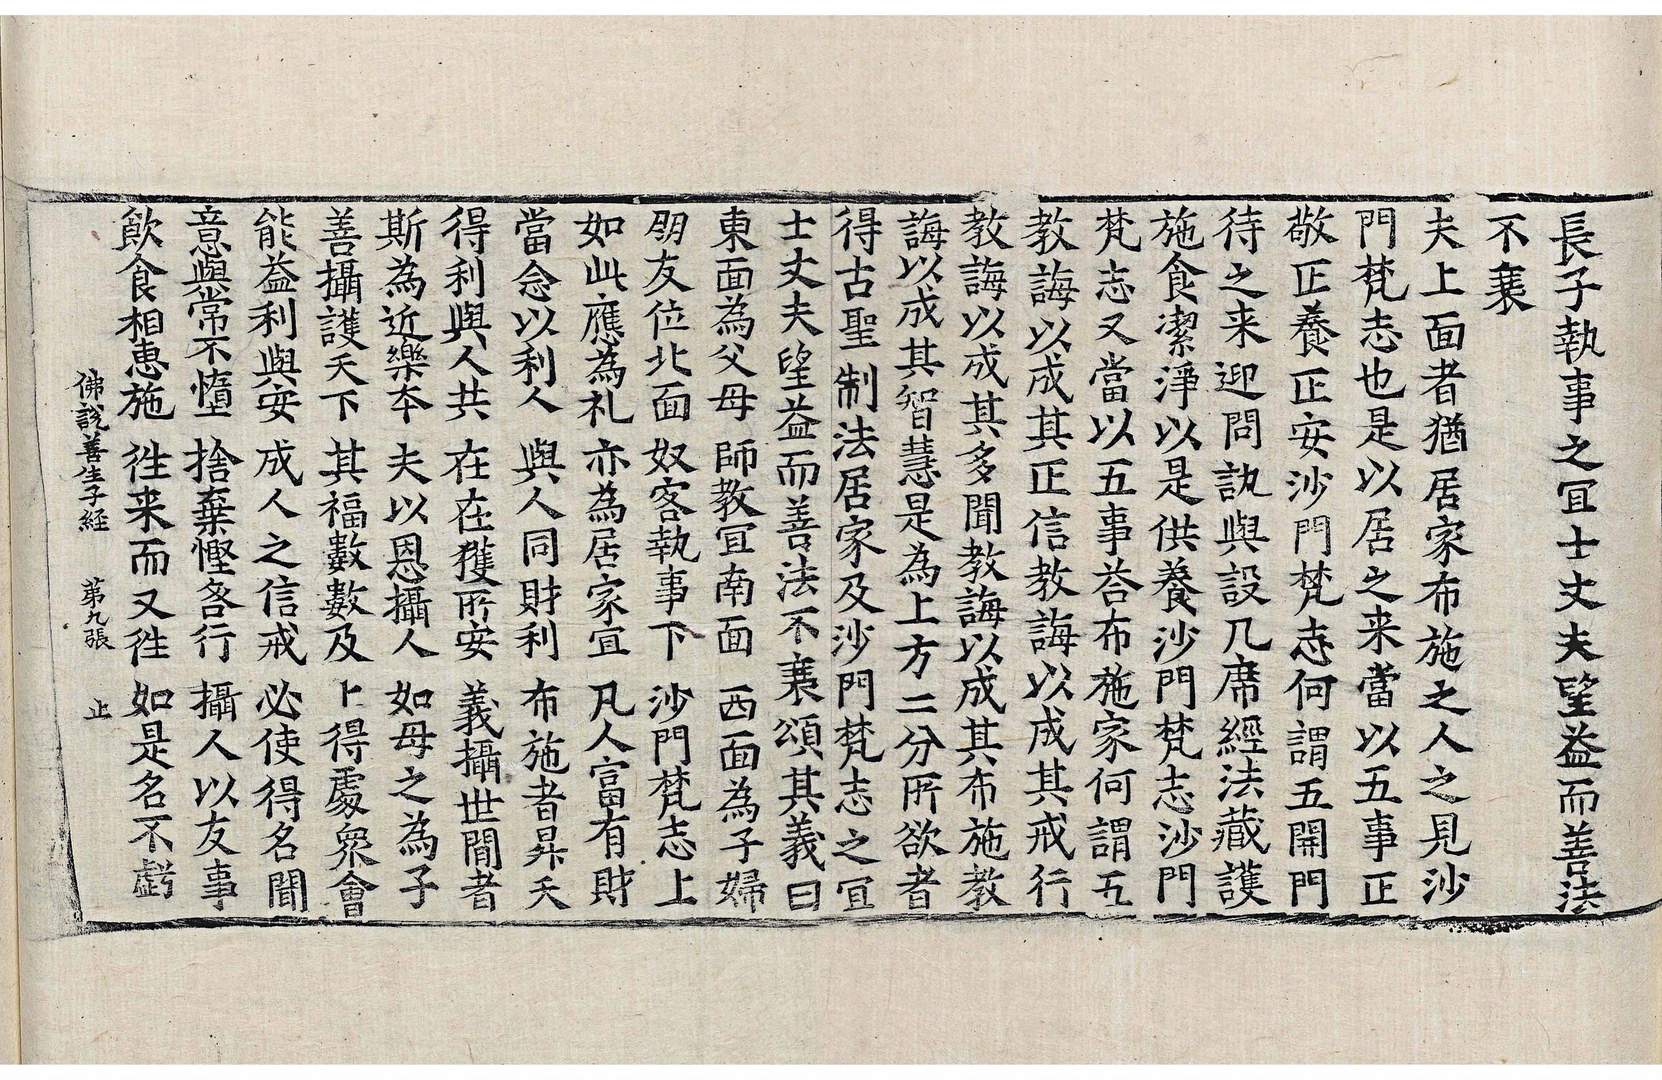 長子執事之冝士丈夫望益而善法
不衰
夫上面者猶居家布施之人之見沙
門梵志也是以居之来當以五事正
敬正養正安沙門梵志何謂五開門
待之来迎問訊與設几席經法藏護
施食潔淨以是供養沙門梵志沙門
梵志又當以五事荅布施家何謂五
教誨以成其正信教誨以成其戒行
教誨以成其多聞教誨以成其布施教
誨以成其智慧是為上方二分所欲者
得古聖制法居家及沙門梵志之冝
士丈夫望益而善法不衰頌其義曰
東面為父母　師教冝南面　西面為子婦
朋友位北面　奴客執事下　沙門梵志上
如此應為礼　亦為居家冝　凡人富有財
當念以利人　與人同財利　布施者昇天
得利與人共　在在獲所安　義攝世間者
斯為近樂夲　夫以恩攝人　如母之為子
善攝護天下　其福數數及　上得處衆會
能益利與安　成人之信戒　必使得名聞
意與常不憻　捨棄慳吝行　攝人以友事
飲食相惠施　徃来而又徃　如是名不虧
佛說善生子經　苐九張　止